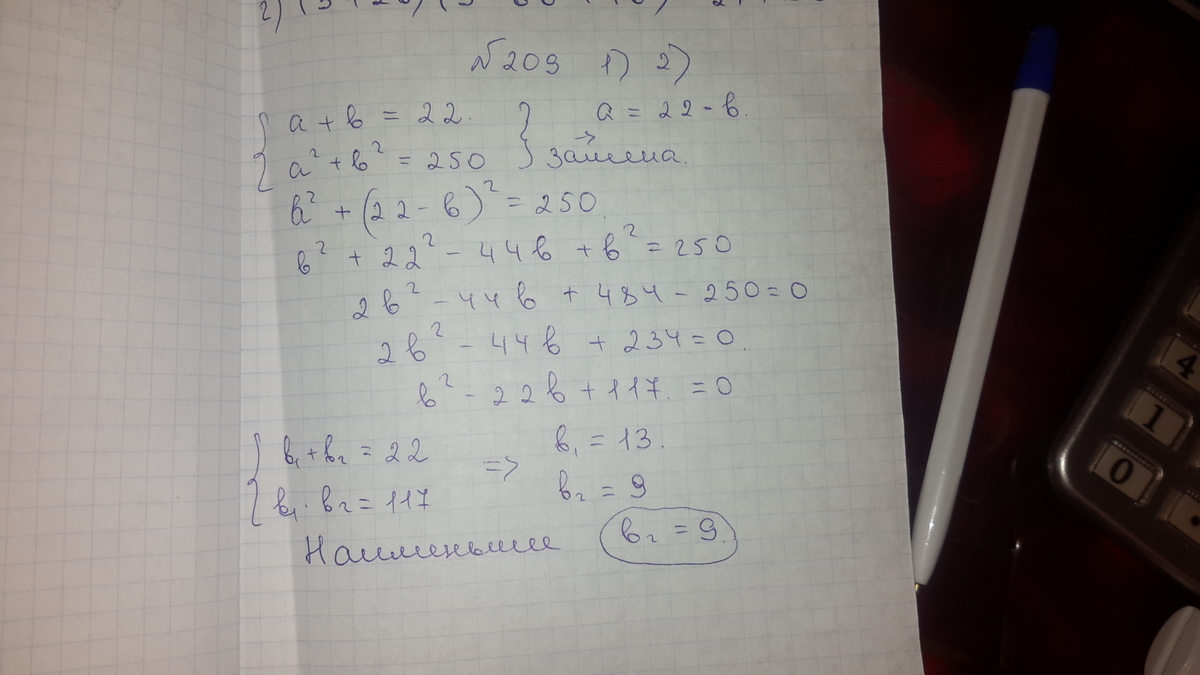 №209 1) 2)
{ a + b = 22. } a = 22 - b.
{ a² + b² = 250 } → замена.
b² + (22 - b)² = 250.
b² + 22² - 44b + b² = 250
2b² - 44b + 484 - 250 = 0
2b² - 44b + 234 = 0.
b² - 22b + 117. = 0
{ b₁ + b₂ = 22 => b₁ = 13.
{ b₁ · b₂ = 117 b₂ = 9
Наименьшее b₂ = 9.
4
1
0